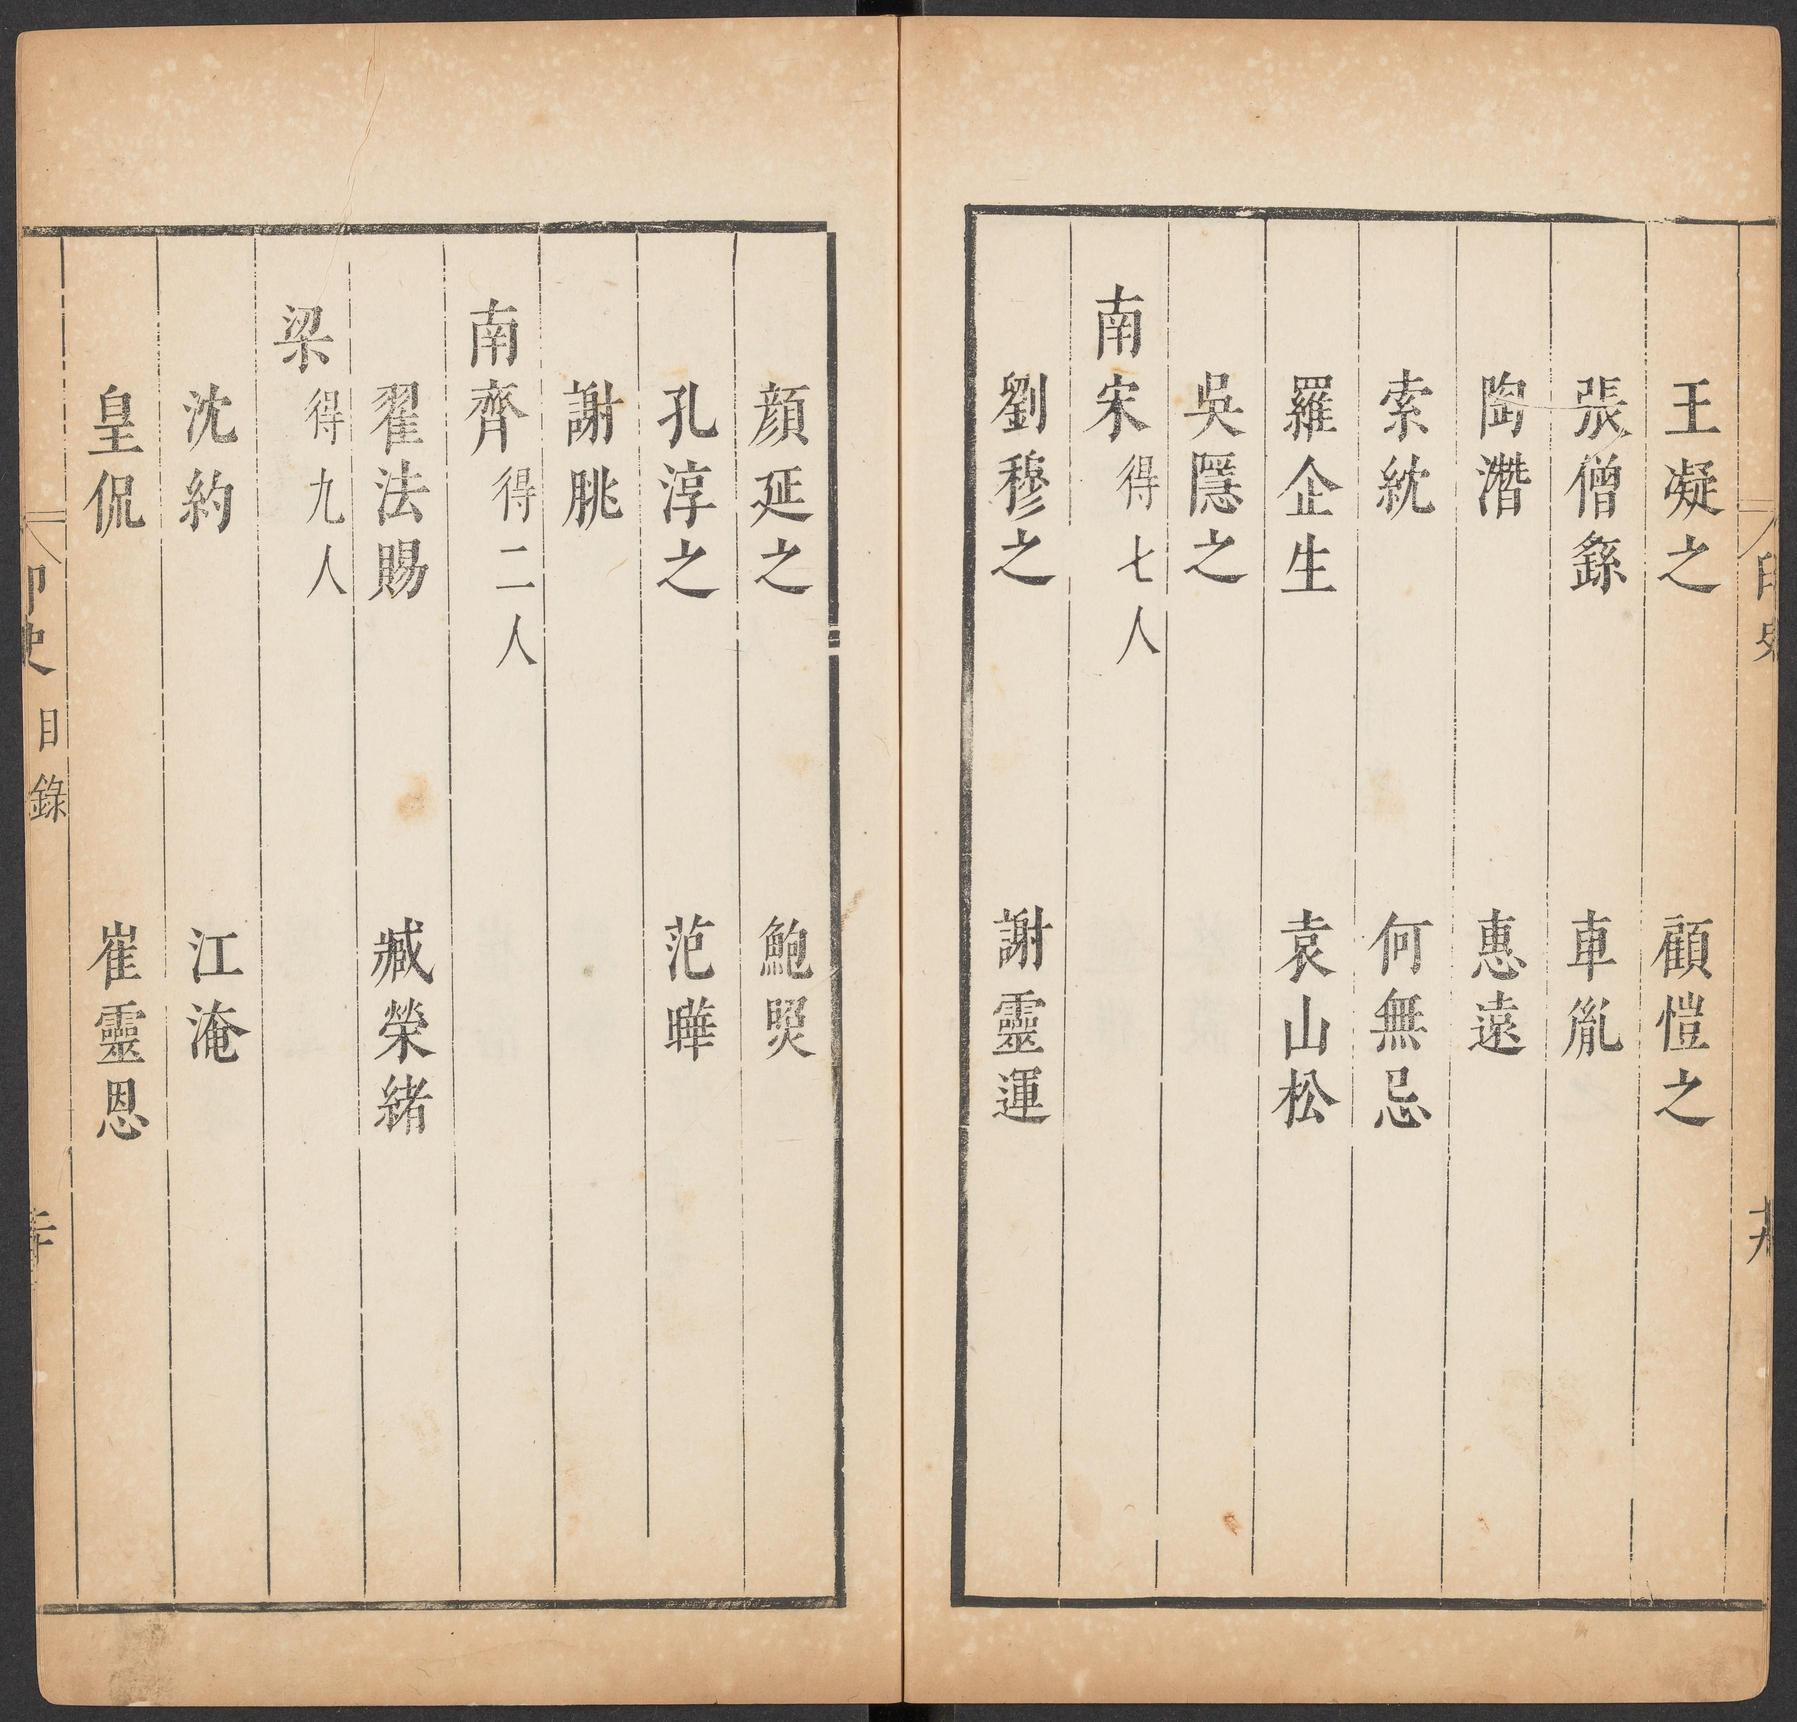 王凝之 顧愷之
張僧繇 車胤
陶潛 惠遠
索紞 何無忌
羅企生 袁山松
吳隱之
南宋得七人
劉穆之 謝靈運
顏延之 鮑煚
孔淳之 范曄
謝朓
南齊得二人
翟法賜 臧榮緒
梁得九人
沈約 江淹
皇侃 崔靈恩
印史 目錄